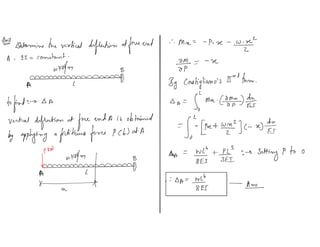 Determine the vertical deflection at free end
A. EI = constant.
w kN/m
B
A
L
To find :→ ΔA
Vertical deflection at free end A is obtained
by applying a fictitious force P (↓) at A
P=0
w kN/m
B
A
L
x
∴ Mx = -P.x - w.x²/2
∂M/∂P = -x
By Castigliano's IInd theorem.
ΔA = ∫₀ᴸ Mx . (∂Mx/∂P) dx/EI
= ∫₀ᴸ -[Px + wx²/2] (-x) dx/EI
ΔA = wL⁴/8EI + PL³/3EI :→ Setting P to 0
∴ ΔA = wL⁴/8EI Ans